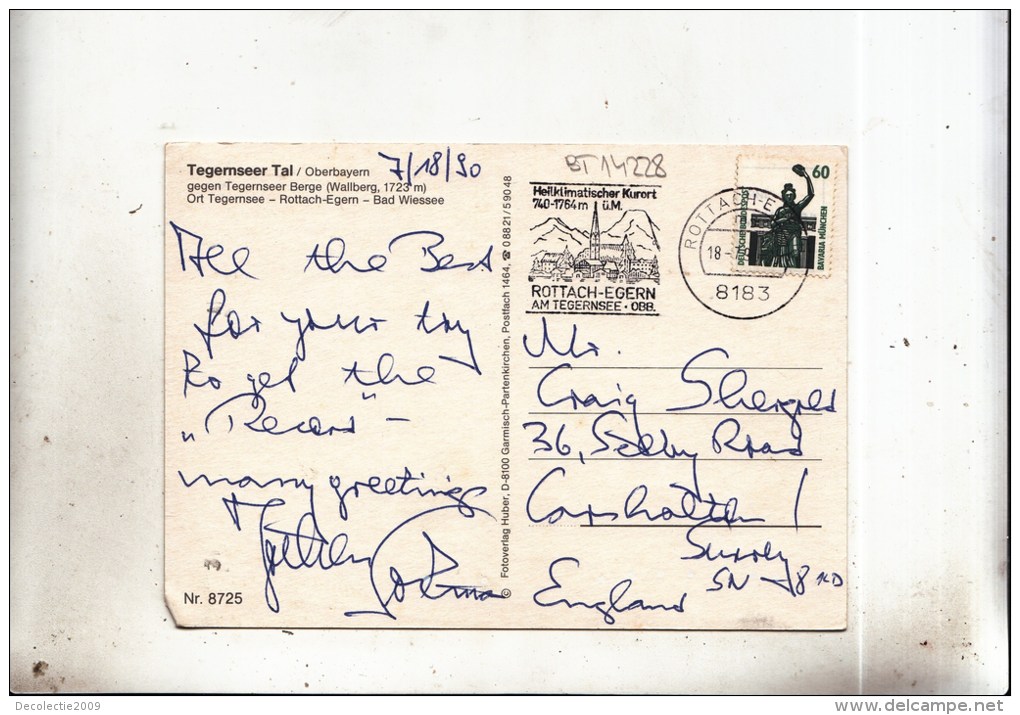 Tegernseer Tal / Oberbayern
gegen Tegernseer Berge (Wallberg, 1723 m)
Ort Tegernsee – Rottach-Egern – Bad Wiessee
7/18/90
All the Best
for your try
to get the
„Record" –
many greetings
Nr. 8725
© Fotoverlag Huber, D-8100 Garmisch-Partenkirchen, Postfach 1464, ☎ 0 88 21 / 5 90 48
BT 14228
Heilklimatischer Kurort
740-1764 m ü.M.
ROTTACH-EGERN
AM TEGERNSEE · OBB.
ROTTACH-E
18-
8183
60
DEUTSCHE BUNDESPOST
BAVARIA MÜNCHEN
Mr.
Craig Shergold
36, Selby Road
Carshalton /
Surrey
SN 8 1LD
England
Decolectie2009
www.delcampe.net